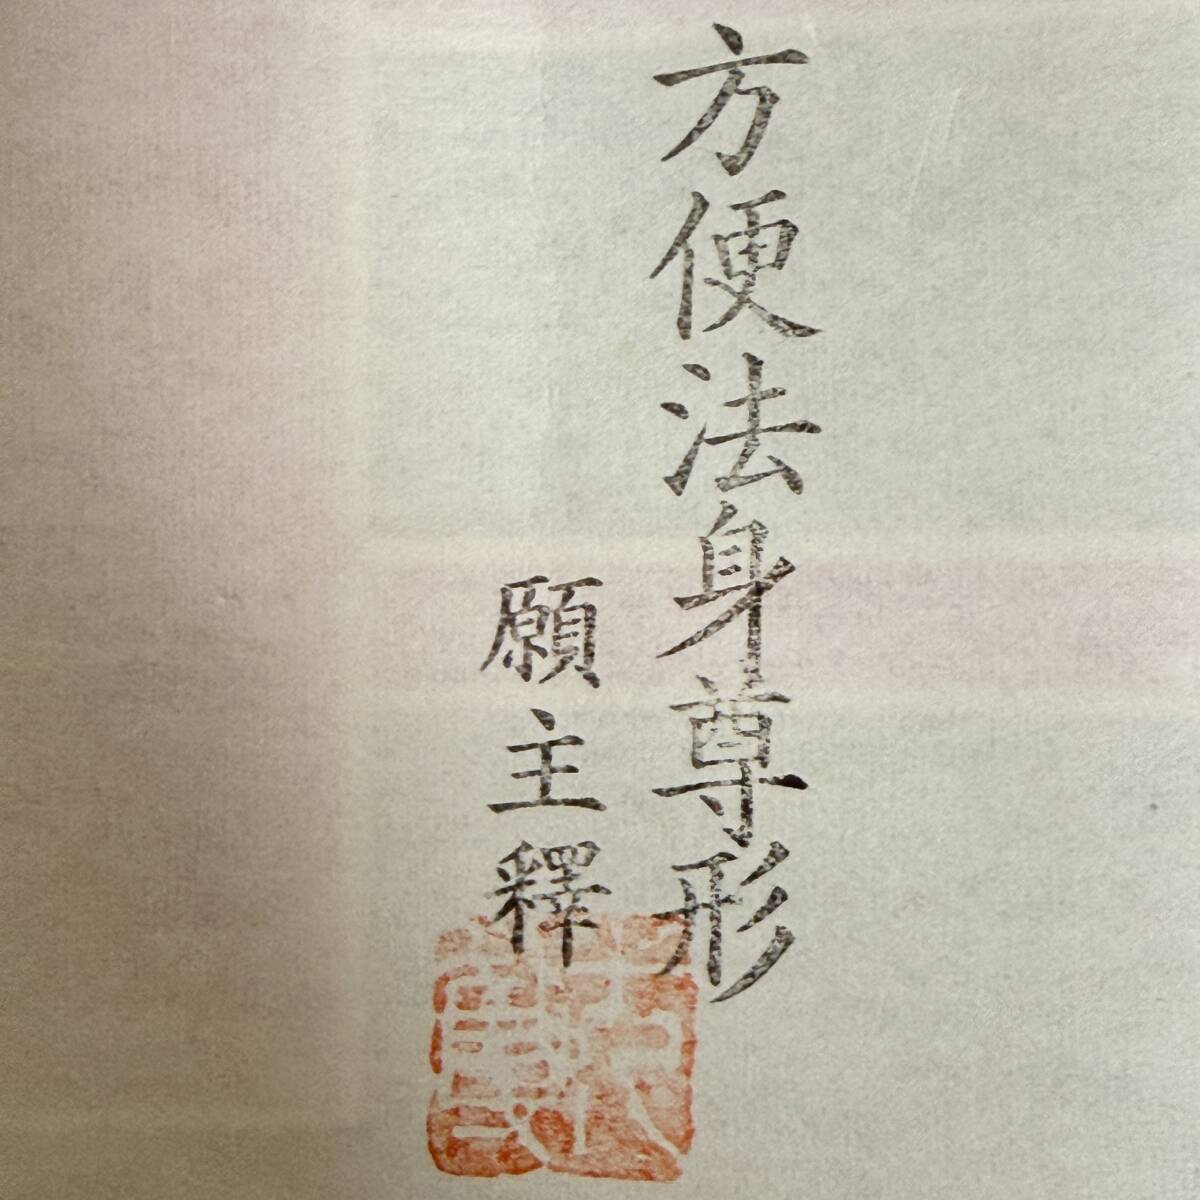 方便法身尊形
願主釋